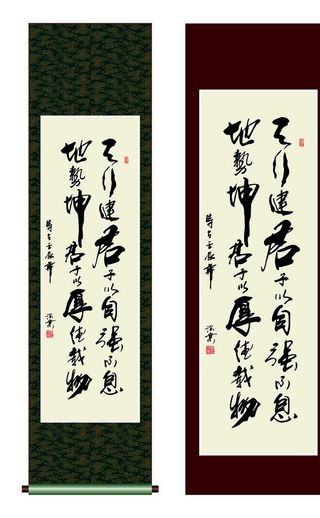 天行健君子以自強不息
地勢坤君子以厚德載物
時在壬辰
天行健君子以自強不息
地勢坤君子以厚德載物
時在壬辰